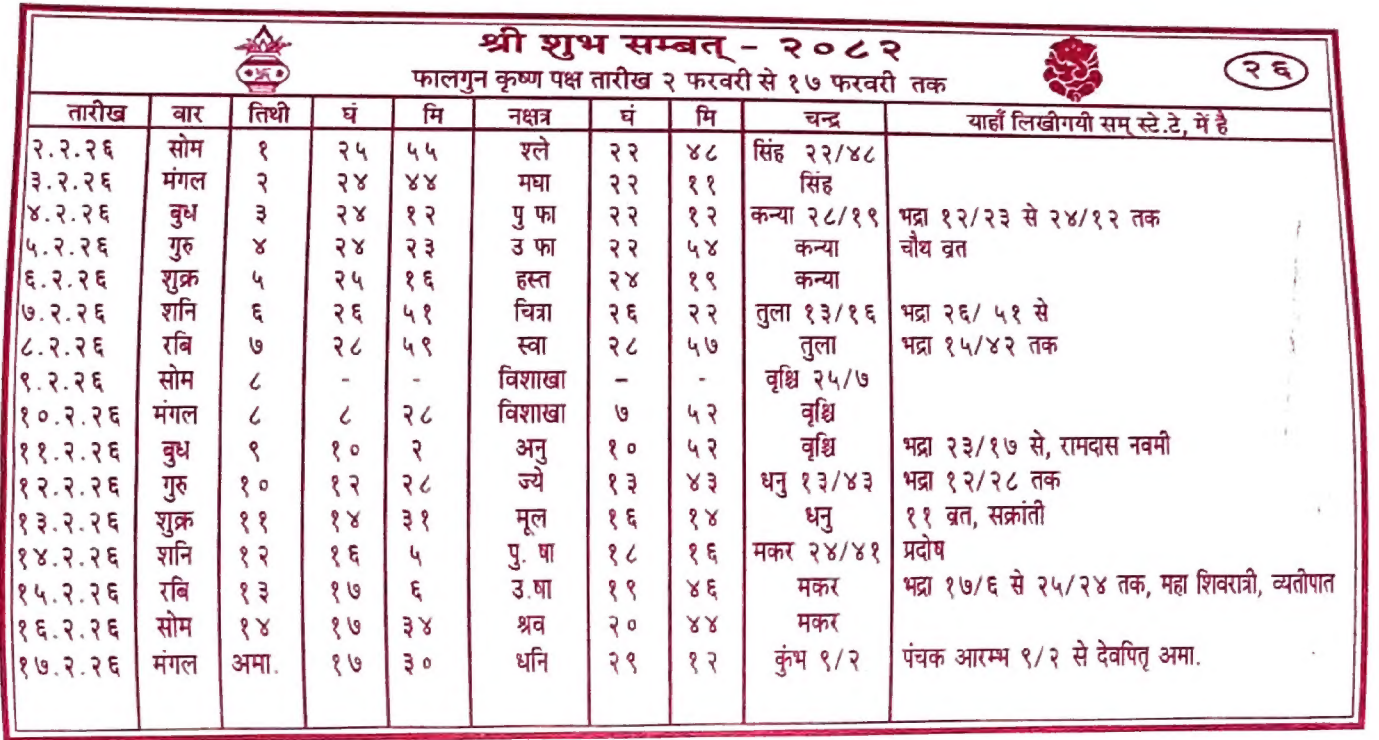 श्री शुभ सम्बत् - २०८२
फालगुन कृष्ण पक्ष तारीख २ फरवरी से १७ फरवरी तक
२६
तारीख वार तिथी घं मि नक्षत्र घं मि चन्द्र याहाँ लिखीगयी सम् स्टे.टे, में है
२.२.२६ सोम १ २५ ५५ श्ले २२ ४८ सिंह २२/४८
३.२.२६ मंगल २ २४ ४४ मघा २२ ११ सिंह
४.२.२६ बुध ३ २४ १२ पु फा २२ १२ कन्या २८/१९ भद्रा १२/२३ से २४/१२ तक
५.२.२६ गुरु ४ २४ २३ उ फा २२ ५४ कन्या चौथ व्रत
६.२.२६ शुक्र ५ २५ १६ हस्त २४ १९ कन्या
७.२.२६ शनि ६ २६ ५१ चित्रा २६ २२ तुला १३/१६ भद्रा २६/ ५१ से
८.२.२६ रबि ७ २८ ५९ स्वा २८ ५७ तुला भद्रा १५/४२ तक
९.२.२६ सोम ८ - - विशाखा – - वृश्चि २५/७
१०.२.२६ मंगल ८ ८ २८ विशाखा ७ ५२ वृश्चि
११.२.२६ बुध ९ १० २ अनु १० ५२ वृश्चि भद्रा २३/१७ से, रामदास नवमी
१२.२.२६ गुरु १० १२ २८ ज्ये १३ ४३ धनु १३/४३ भद्रा १२/२८ तक
१३.२.२६ शुक्र ११ १४ ३१ मूल १६ १४ धनु ११ व्रत, सक्रांती
१४.२.२६ शनि १२ १६ ५ पु. षा १८ १६ मकर २४/४१ प्रदोष
१५.२.२६ रबि १३ १७ ६ उ.षा १९ ४६ मकर भद्रा १७/६ से २५/२४ तक, महा शिवरात्री, व्यतीपात
१६.२.२६ सोम १४ १७ ३४ श्रव २० ४४ मकर
१७.२.२६ मंगल अमा. १७ ३० धनि २९ १२ कुंभ ९/२ पंचक आरम्भ ९/२ से देवपितृ अमा.